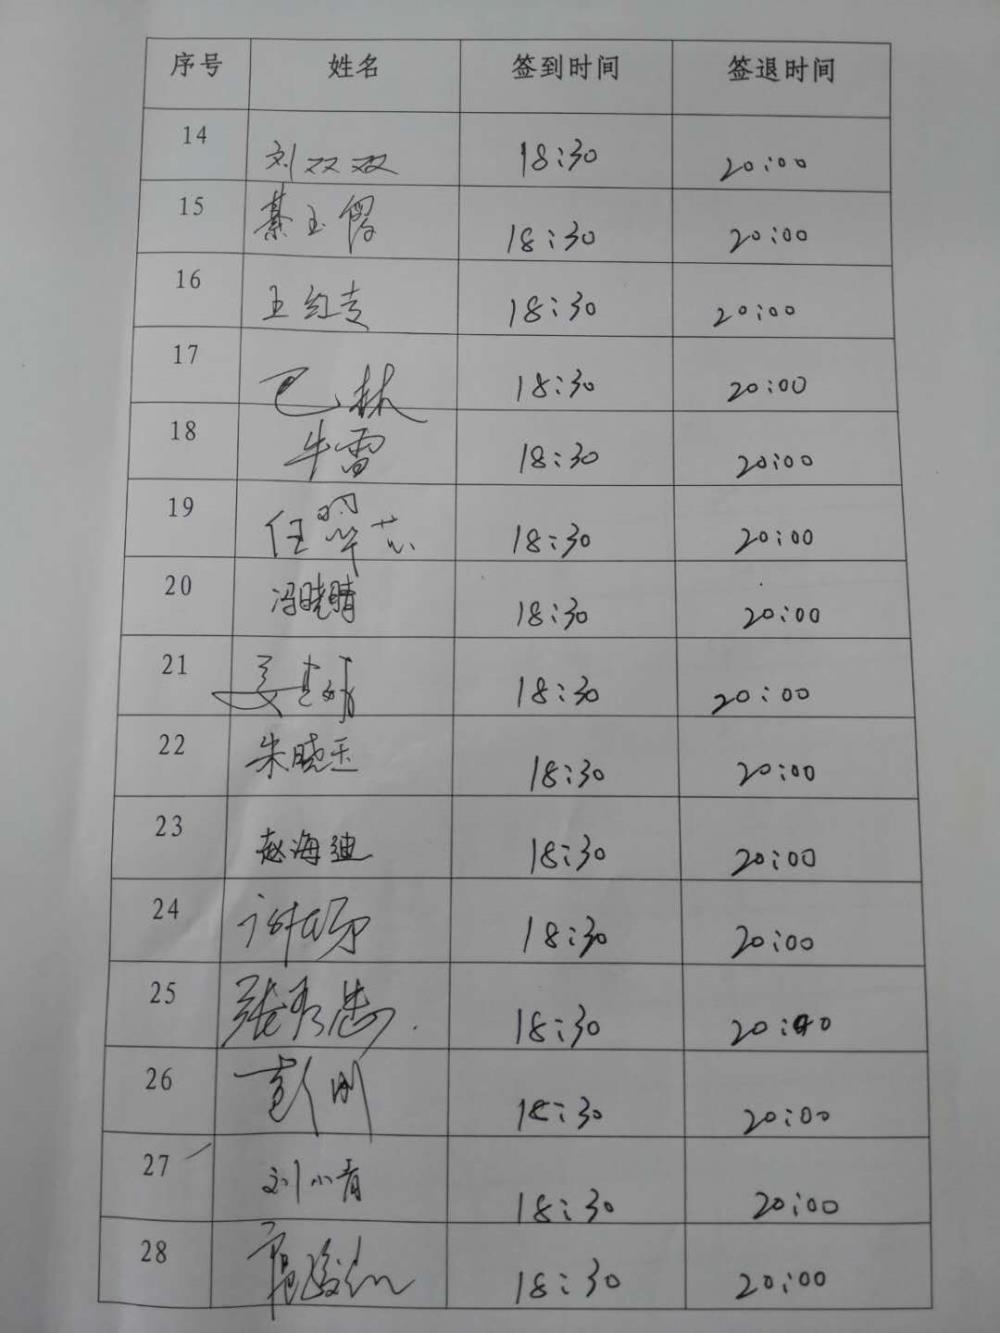 序号 姓名 签到时间 签退时间
14 刘双双 18:30 20:00
15 綦玉 18:30 20:00
16 王红 18:30 20:00
17 巴林 18:30 20:00
18 牛雷 18:30 20:00
19 任翠芯 18:30 20:00
20 冯晓晴 18:30 20:00
21 姜 18:30 20:00
22 朱晓玉 18:30 20:00
23 赵海迪 18:30 20:00
24 18:30 20:00
25 张秀 18:30 20:00
26 彭刚 18:30 20:00
27 刘小青 18:30 20:00
28 18:30 20:00